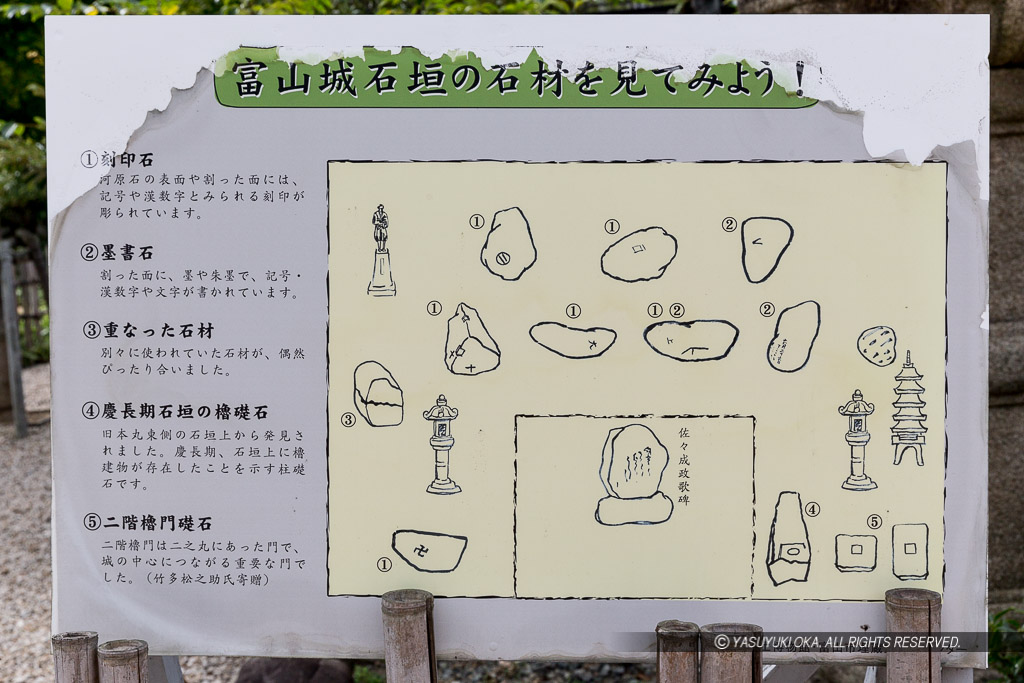 富山城石垣の石材を見てみよう！
①刻印石
河原石の表面や割った面には、
記号や漢数字とみられる刻印が
彫られています。
②墨書石
割った面に、墨や朱墨で、記号・
漢数字や文字が書かれています。
③重なった石材
別々に使われていた石材が、偶然
ぴったり合いました。
④慶長期石垣の櫓礎石
旧本丸東側の石垣上から発見さ
れました。慶長期、石垣上に櫓
建物が存在したことを示す柱礎
石です。
⑤二階櫓門礎石
二階櫓門は二之丸にあった門で、
城の中心につながる重要な門で
した。（竹多松之助氏寄贈）
①
①
②
①
①
① ②
②
③
佐々成政歌碑
④
⑤
①
卍
© YASUYUKI OKA. ALL RIGHTS RESERVED.